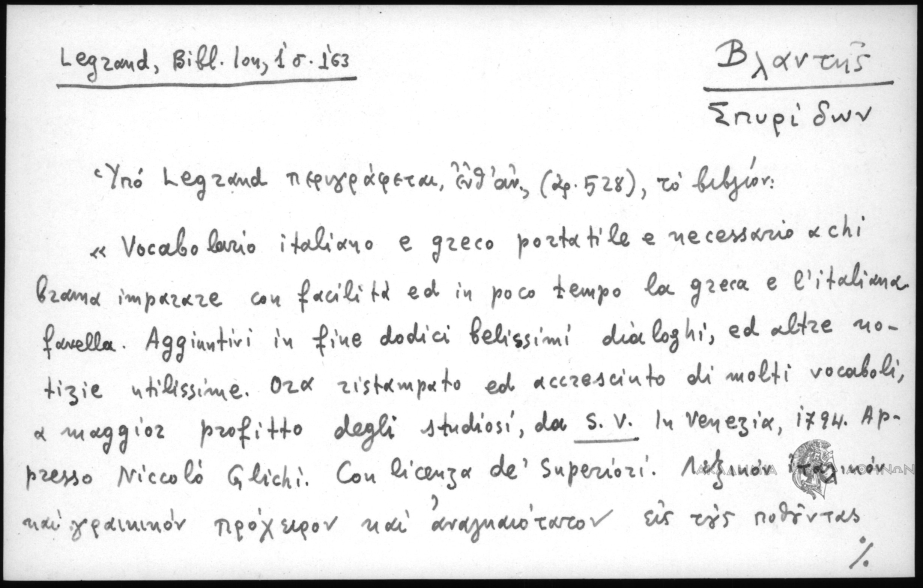 Legrand, Bibl. Ion, 1 σ. 163
Βλαντῆς
Σπυρίδων
Ὑπό Legrand περιγράφεται, ἔνθ' ἀν., (ἀρ. 528), τό βιβλίον:
« Vocabolario italiano e greco portatile e necessario a chi
brama imparare con facilità ed in poco tempo la greca e l'italiana
favella. Aggiuntivi in fine dodici belissimi dialoghi, ed altre no-
tizie utilissime. Ora ristampato ed accresciuto di molti vocaboli,
a maggior profitto degli studiosi, da S. V. In Venezia, 1794. Ap-
presso Niccolò Glichi. Con licenza de' Superiori. Λεξικόν ἰταλικόν
καί γραικικόν πρόχειρον καί ἀναγκαιότατον εἰς τούς ποθοῦντας
%